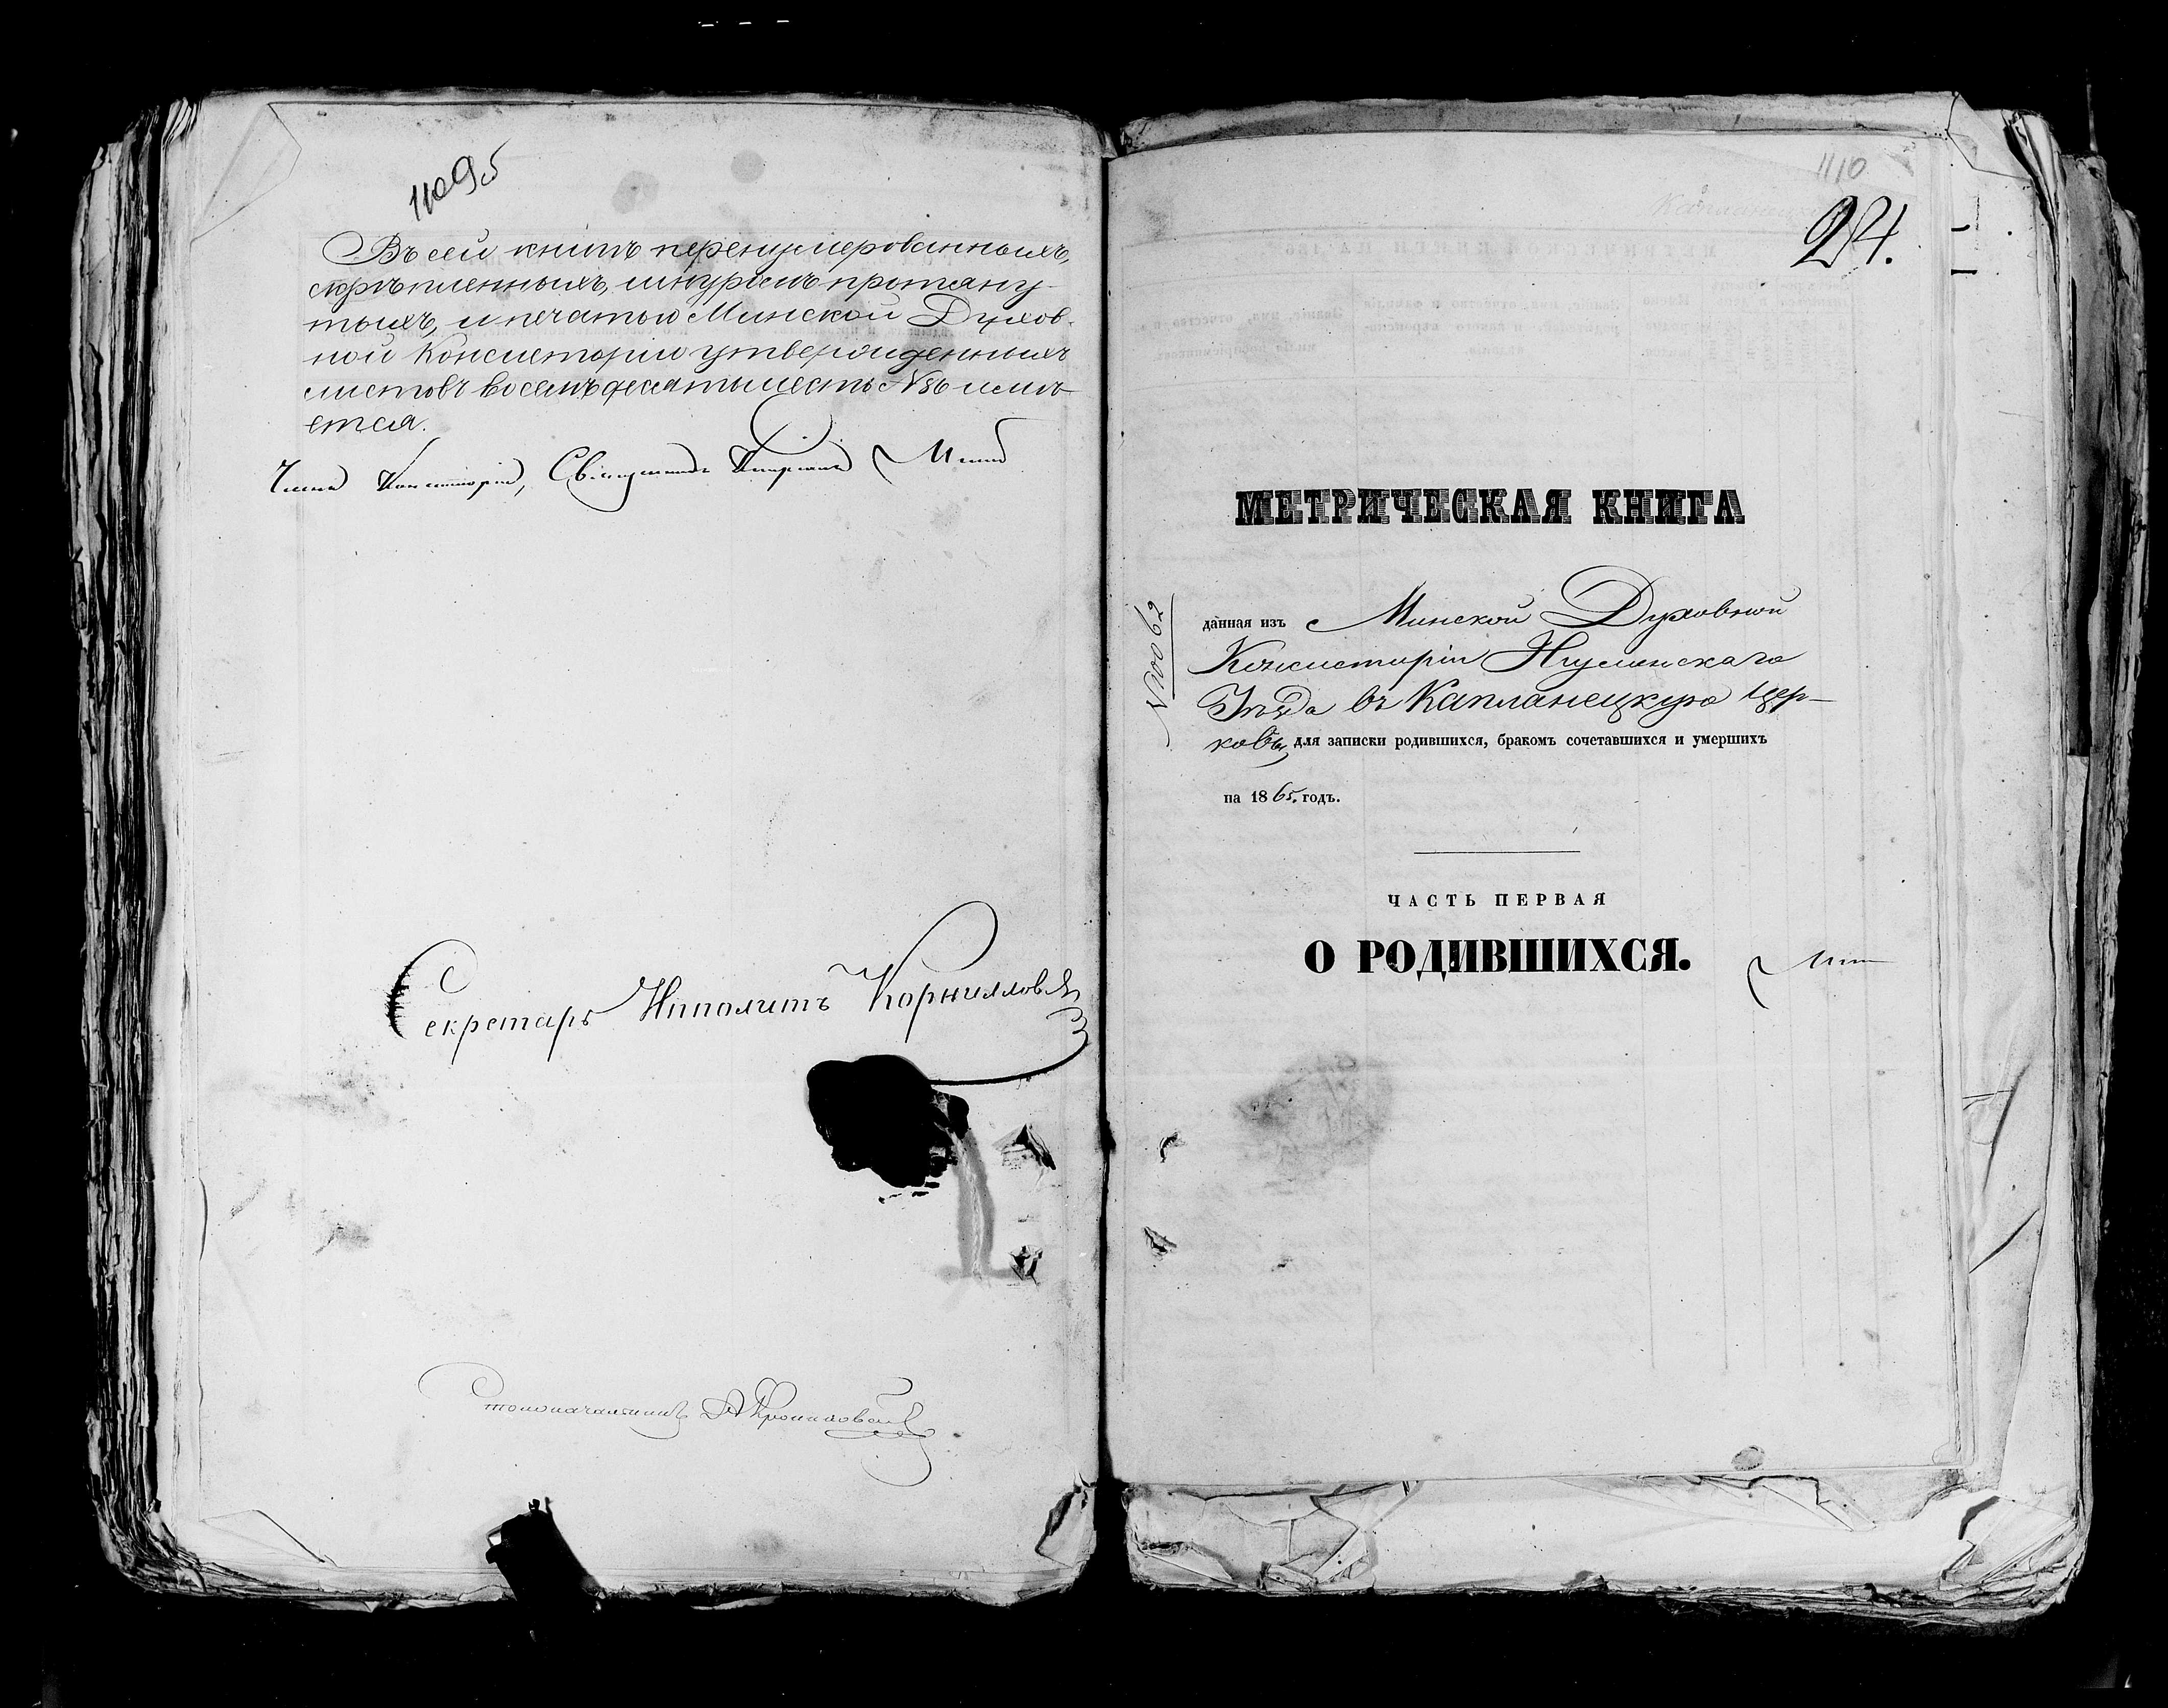 1109б
Въ сей книгѣ перенумерованныхъ,
скрѣпленныхъ, шнуромъ протяну-
тыхъ, и печатью Минской Духов-
ной Консисторіи утвержденныхъ
листовъ восемьдесятъ шесть №86 имѣ-
ется.
Членъ Консисторіи, Священникъ
Секретарь Ипполитъ Корнилловъ
Столоначальникъ
1110
24.
МЕТРИЧЕСКАЯ КНИГА
№10062
данная изъ Минской Духовной
Консисторіи Игуменскаго
Уѣзда въ Капланецкую Цер-
ковь, для записки родившихся, бракомъ сочетавшихся и умершихъ
на 1865. годъ.
ЧАСТЬ ПЕРВАЯ
О РОДИВШИХСЯ.